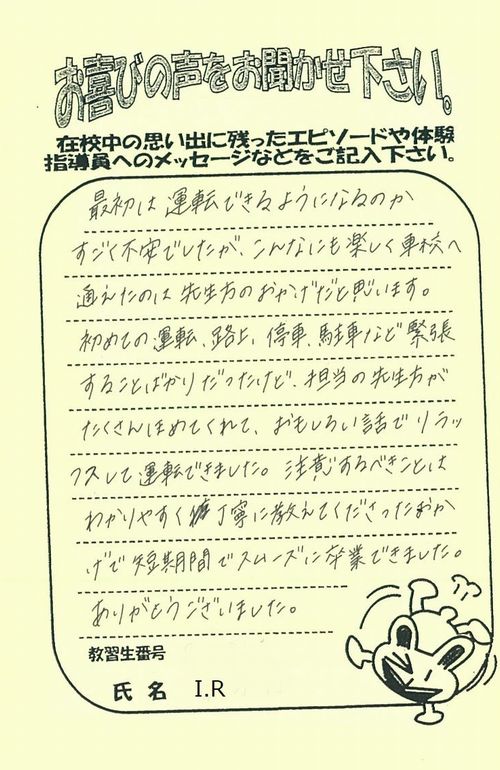 お喜びの声をお聞かせ下さい。
在校中の思い出に残ったエピソードや体験
指導員へのメッセージなどをご記入下さい。
最初は運転できるようになるのか
すごく不安でしたが、こんなにも楽しく車校へ
通えたのは先生方のおかげだと思います。
初めての運転、路上、停車、駐車など緊張
することばかりだったけど、担当の先生方が
たくさんほめてくれて、おもしろい話でリラッ
クスして運転できました。注意するべきことは
わかりやすく丁寧に教えてくださったおか
げで短期間でスムーズに卒業できました。
ありがとうございました。
教習生番号
氏名 I.R